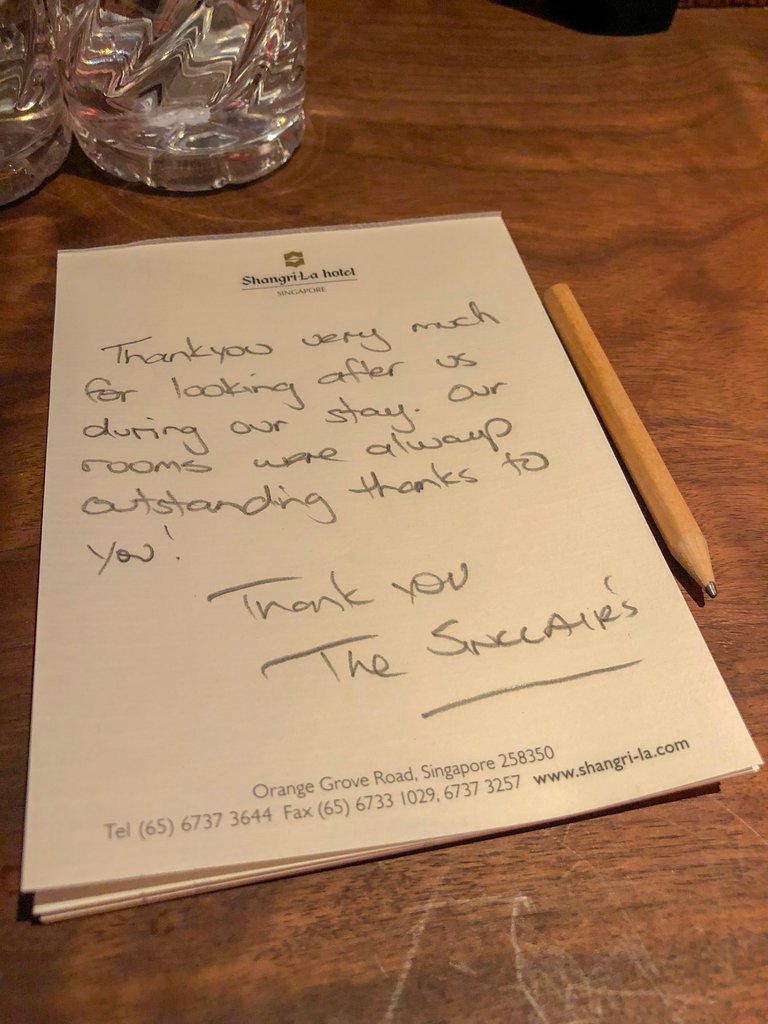 Shangri-La hotel
SINGAPORE
Thankyou very much
for looking after us
during our stay. Our
rooms were always
outstanding thanks to
you!
Thank you
The SINCLAIR's
Orange Grove Road, Singapore 258350
Tel (65) 6737 3644 Fax (65) 6733 1029, 6737 3257 www.shangri-la.com